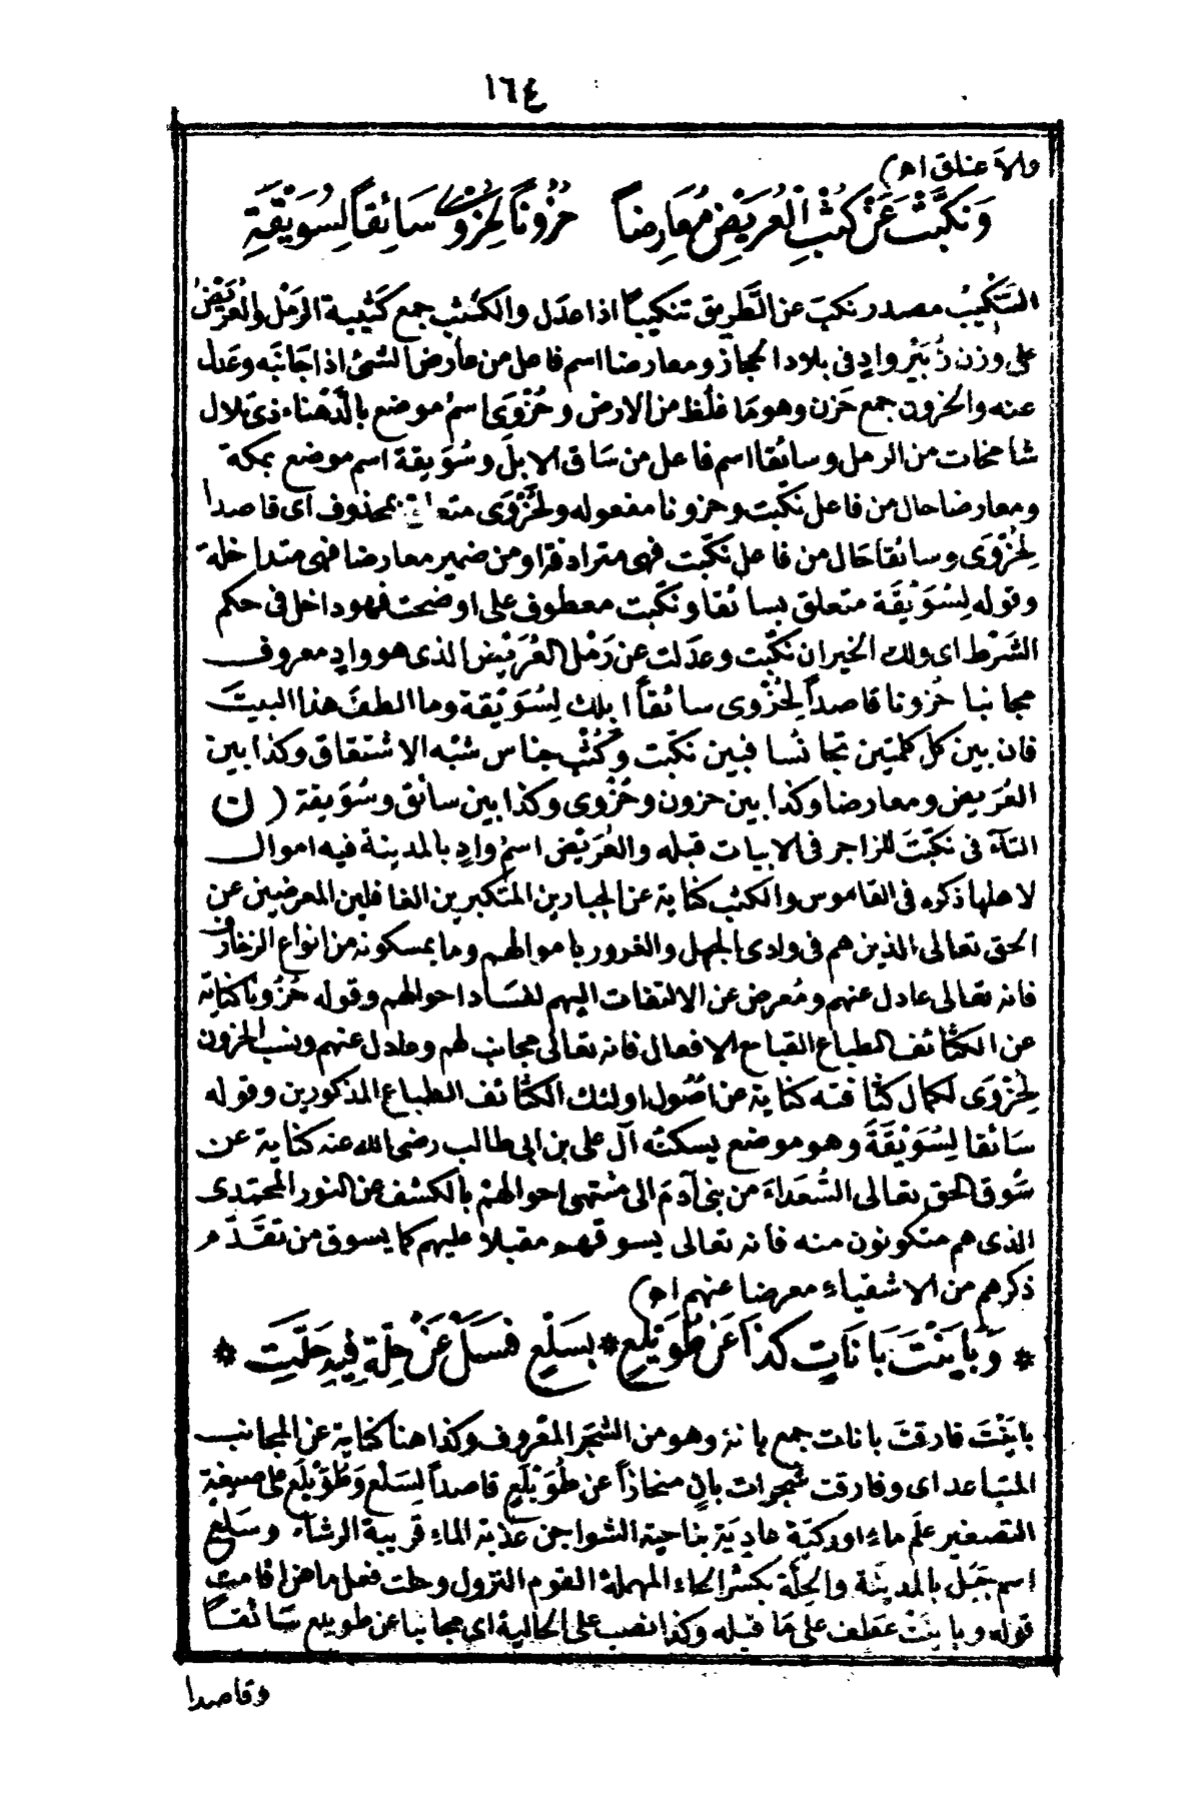 ١٦٤
ولا عناق اه)
وَنَكَّبْتَ عَنْ كُثْبِ الْعُرَيْضِ مُعَارِضاً حُزُوناً لِحُزْوَى سَائِقاً لِسُوَيْقَةِ
التَّنْكِيبُ مصدر نكبَ عن الطَّرِيق تنكيباً اذا عدَل والكثب جمع كَثيبة الرَمْل والعُرَيْضُ
على وَزن زُبَيْر وادٍ فى بلاد الحجاز ومعارضا اسم فاعل من عارض الشئ اذا جَانَبَه وعَدل
عنه والحزون جمع حَزن وهو مَا غلُظ من الارض وحُزْوَى اسمُ موضع بالدَّهْناء ذى تلال
شامخات من الرمل وسائقا اسم فاعل من سَاق الابلَ وسُوَيقة اسم موضع بمكة
ومعارضا حال من فاعل نكّبت وحزونا مفعوله ولحُزْوَى متعلق بمحذوف اى قاصدا
لِحُزْوَى وسائقا حَال من فاعل نكّبت فهى مترادفة او من ضمير معارضا فهى متداخلة
وقوله لِسُوَيْقَة متعلق بسائقا ونكّبت معطوف على اوضحت فهو داخل فى حكم
الشَرْط اى ولك الخير ان نكّبت وعدَلت عن رَمْل العُرَيْض الذى هو وادٍ معروف
مجانبا حُزونا قاصداً لِحُزْوى سائقاً ابلك لِسُوَيْقة وما الطفَ هذا البيتَ
فان بين كل كلمتين تجانُسا فبين نكّبت وكُثْب جناس شبْه الاشتقاق وكذا بين
العُرَيض ومعارضا وكذا بين حزون وحُزْوى وكذا بين سائق وسُوَيقة (ن)
التآء فى نكّبتَ للزاجر فى الابيات قبله والعُرَيْض اسم وادٍ بالمدينة فيه اموال
لاهلها ذكره فى القاموس والكثب كناية عن الجبارين المتكبرين الغافلين المعرضين عن
الحق تعالى الذين هم فى وادى الجهل والغرور باموالهم وما يمسكونه من انواع الزخارف
فانه تعالى عادل عنهم ومُعرض عن الالتفات اليهم لفسَاد احوالهم وقوله حُزُوناً كناية
عن الكثائف الطباع القباح الافعال فانه تعالى مجانب لهم وعادل عنهم ونسب الحزون
لِحُزْوَى لكمال كثافته كناية عن اصُول اولئك الكثائف الطباع المذكورين وقوله
سَائقا لِسُوَيْقَةَ وهو موضع يسكنُه آل على بن ابى طالب رضى الله عنه كناية عن
سَوق الحق تعالى السُّعَداءَ من بنى آدمَ الى منتهى احوالهمْ بالكشف عن النور المحمّدى
الذى هم متكونون منه فانه تعالى يسوقهم مقبلا عليهم كما يسوق من تقدّم
ذكرهم من الاشقياء معرضا عنهم اه)
* وَبَايَنْتَ بَانَاتٍ كذَا عَنْ طُوَيْلِعٍ * بسَلْعٍ فسَلْ عَنْ حِلَّةٍ فِيهِ حَلَّتِ *
باينتَ فارقتَ بانات جمع بانة وهو من الشجر المعْروف وكذا هنا كناية عن المجانب
المتباعد اى وفارقت شجرات بانٍ منحازاً عن طُوَيْلع قاصداً لِسَلْع وطُوَيْلع على صيغة
التصغير علَم ماءٍ او ركيّة عاديَة بناحية الشواجن عذبة الماء قريبة الرشآء وسَلع
اسم جَبَل بالمدينة والحِلّة بكسْر الحاء المهملة القوم النزول وحلت فعل ماض اقامت
قوله وباينْتَ عَطف على مَا قبله وكذا نصب على الحالية اى مجانبا عن طويلع سَائقاً
وقاصدا